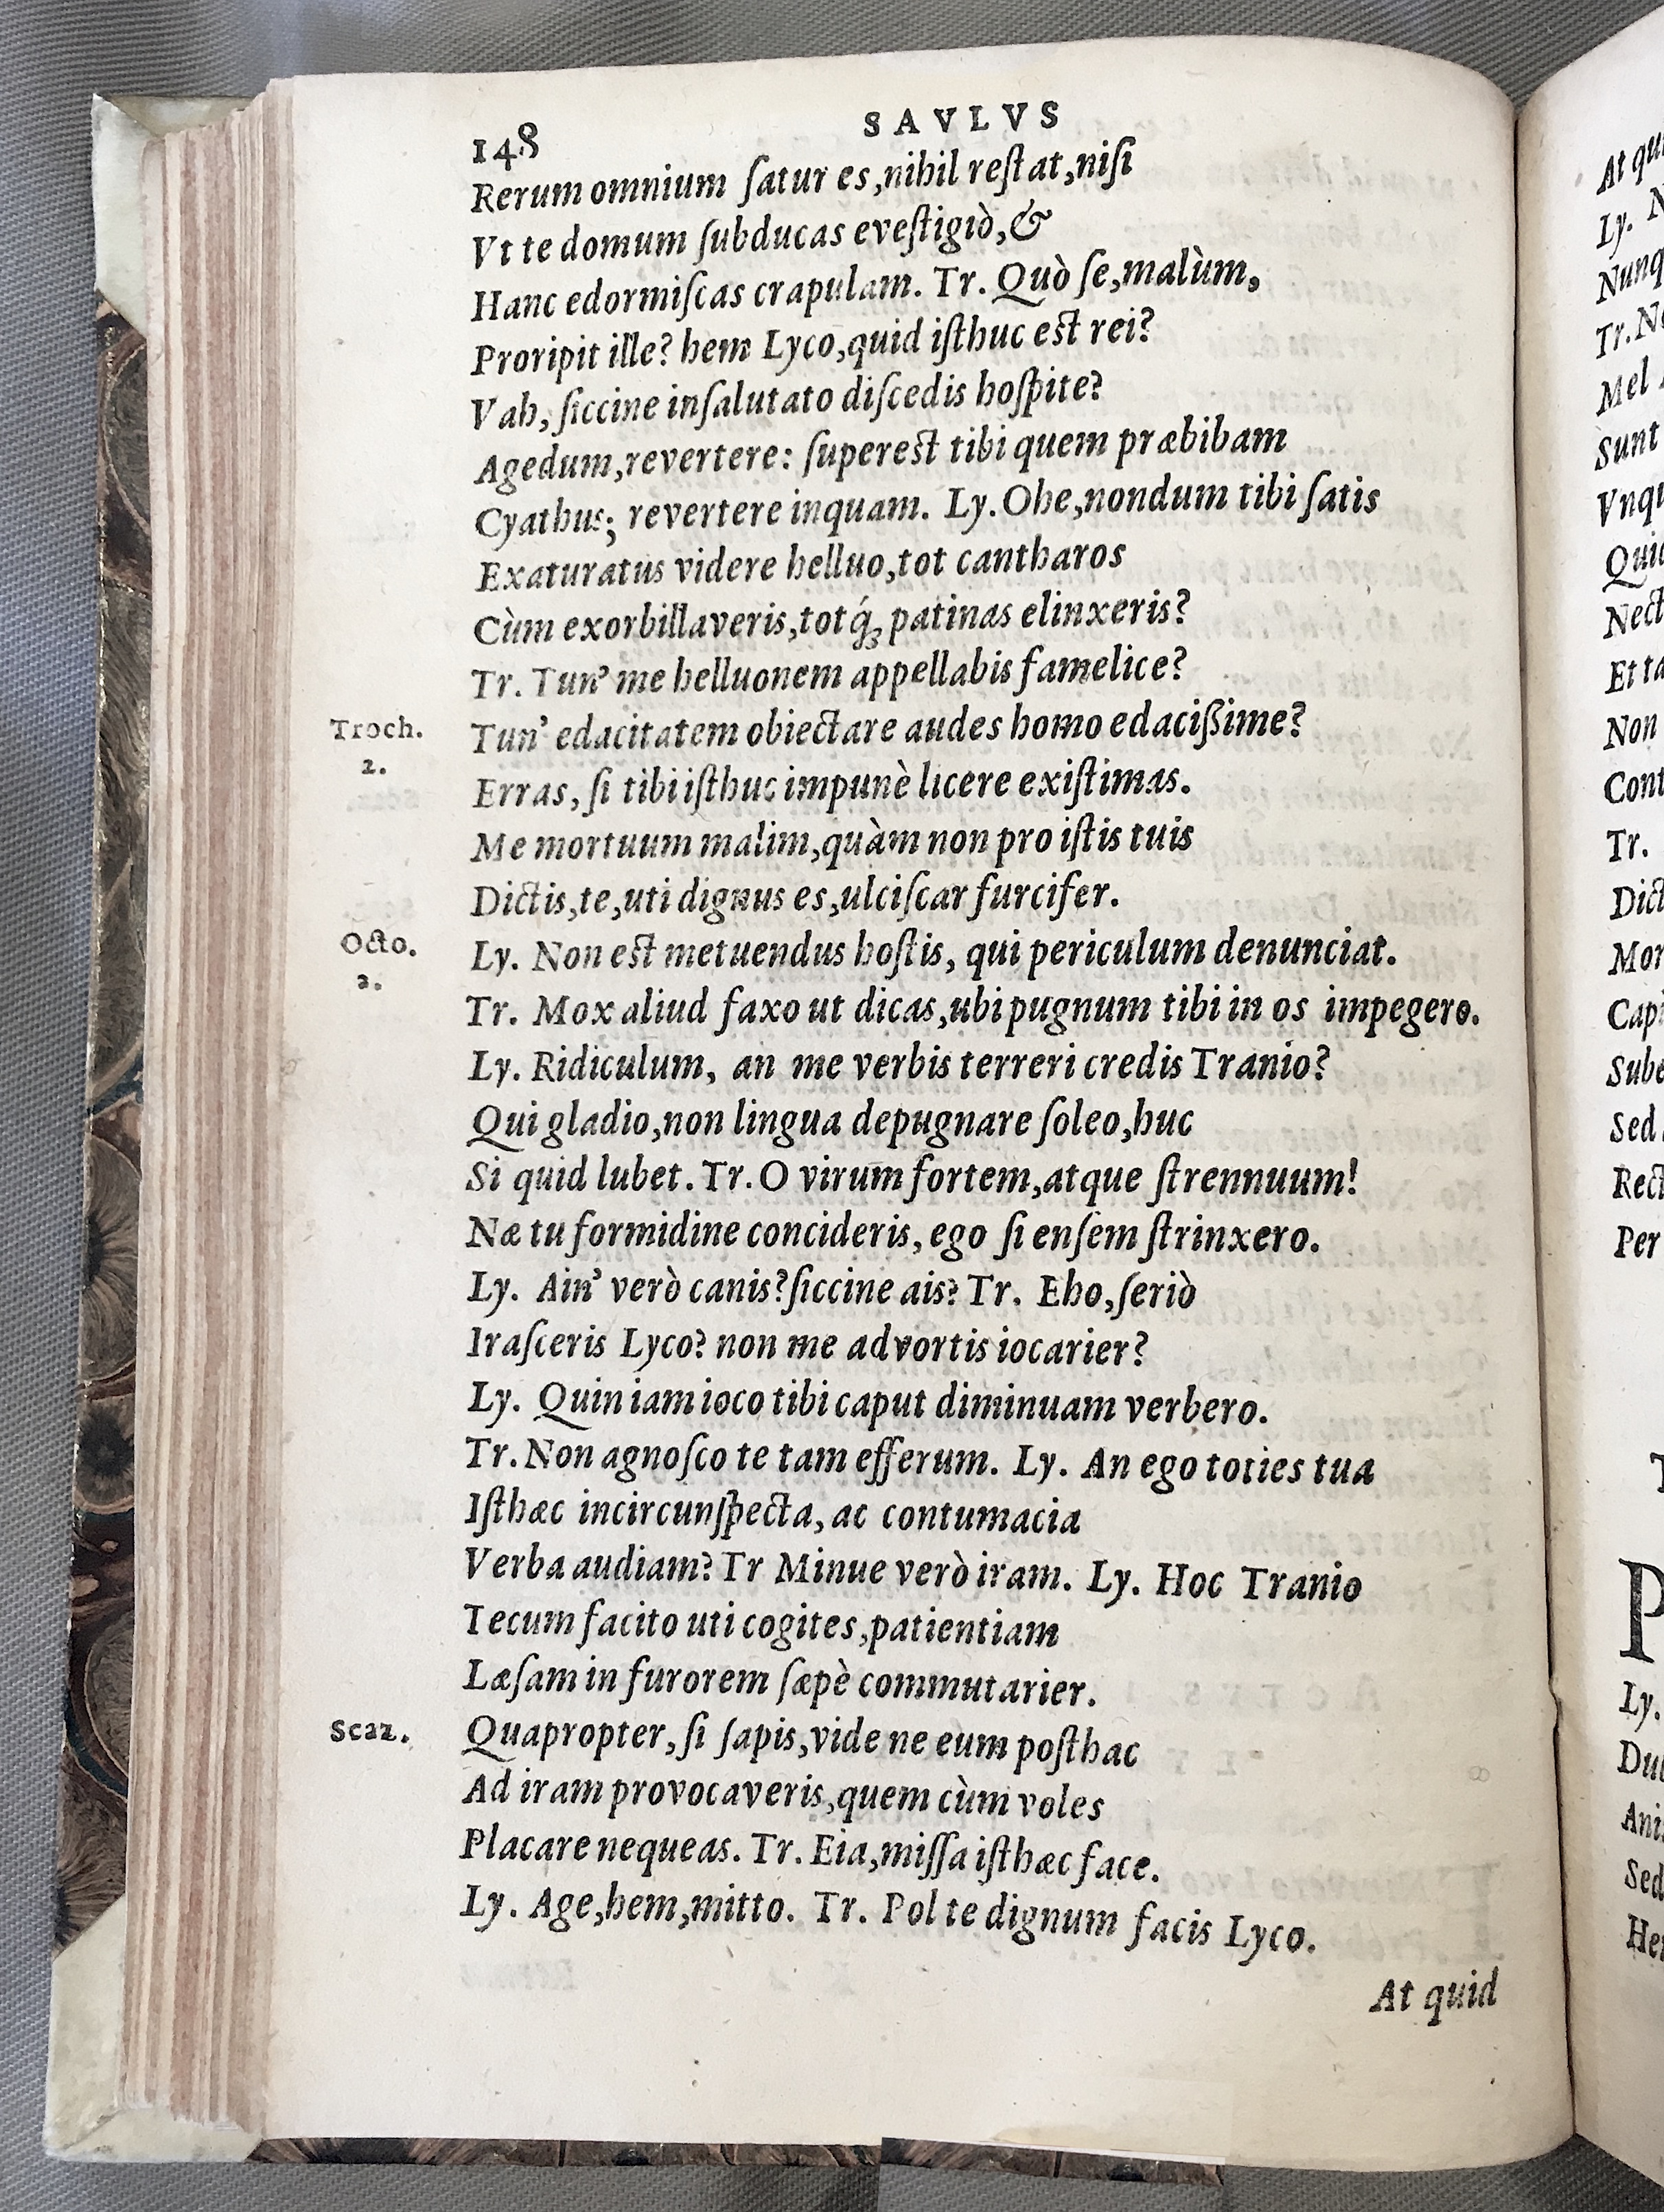 SAVLVS
148
Rerum omnium ſatur es,nihil reſtat,niſi
Vt te domum ſubducas eveſtigiò,&
Hanc edormiſcas crapulam. Tr. Quò ſe,malùm,
Proripit ille? hem Lyco,quid iſthuc est rei?
Vah, ſiccine inſalutato diſcedis hoſpite?
Agedum,revertere: ſuperest tibi quem præbibam
Cyathus; revertere inquam. Ly. Ohe,nondum tibi ſatis
Exaturatus videre helluo,tot cantharos
Cùm exorbillaveris,totq́; patinas elinxeris?
Tr. Tun' me helluonem appellabis famelice?
Troch. 2.
Tun' edacitatem obiectare audes homo edacißime?
Erras, ſi tibi iſthuc impunè licere exiſtimas.
Me mortuum malim,quàm non pro iſtis tuis
Dictis,te,uti dignus es,ulciſcar furcifer.
Octo. 2.
Ly. Non est metuendus hoſtis, qui periculum denunciat.
Tr. Mox aliud faxo ut dicas,ubi pugnum tibi in os impegero.
Ly. Ridiculum, an me verbis terreri credis Tranio?
Qui gladio,non lingua depugnare ſoleo,huc
Si quid lubet. Tr. O virum fortem,atque ſtrennuum!
Næ tu formidine concideris, ego ſi enſem ſtrinxero.
Ly. Ain' verò canis? ſiccine ais? Tr. Eho,ſeriò
Iraſceris Lyco? non me advortis iocarier?
Ly. Quin iam ioco tibi caput diminuam verbero.
Tr. Non agnoſco te tam efferum. Ly. An ego toties tua
Iſthæc incircunſpecta, ac contumacia
Verba audiam? Tr Minue verò iram. Ly. Hoc Tranio
Tecum facito uti cogites,patientiam
Læſam in furorem ſæpè commutarier.
Scaz.
Quapropter, ſi ſapis,vide ne eum poſthac
Ad iram provocaveris,quem cùm voles
Placare nequeas. Tr. Eia,miſſa iſthæc face.
Ly. Age,hem,mitto. Tr. Pol te dignum facis Lyco.
At quid
At
Ly.
Sunt
Et
Non
Tr.
Sed
Per
P
Ly.
Sed